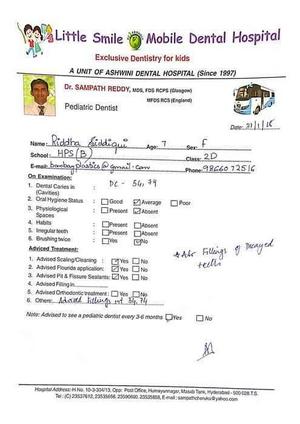 Little Smile Mobile Dental Hospital
Exclusive Dentistry for kids
A UNIT OF ASHWINI DENTAL HOSPITAL (Since 1997)
Dr. SAMPATH REDDY, MDS, FDS RCPS (Glasgow)
MFDS RCS (England)
Pediatric Dentist
Date: 27/1/16
Name: Riddha Siddiqui Age: 7 Sex: F
School: HPS (B) Class: 2D
E-mail: @gmail.com Phone:
On Examination:
1. Dental Caries in (Cavities) DC - 54, 74
2. Oral Hygiene Status : Good Average Poor
3. Physiological Spaces : Present Absent
4. Habits : Present Absent
5. Irregular teeth : Present Absent
6. Brushing twice : Yes No
* Adv Fillings of Decayed teeth
Advised Treatment:
1. Advised Scaling/Cleaning : Yes No
2. Advised Flouride application: Yes No
3. Advised Pit & Fissure Sealants: Yes No
4. Advised Filling in
5. Advised Orthodontic treatment : Yes No
6. Others: Advised fillings wrt 54, 74
Note: Advised to see a pediatric dentist every 3-6 months Yes No
Hospital Address: H.No. 10-3-304/13, Opp: Post Office, Humayunnagar, Masab Tank, Hyderabad - 500 028 T.S.
Tel.: (C) 23537612, 23535658, 23590680, 23535858, E-mail : sampathcheruku@yahoo.com